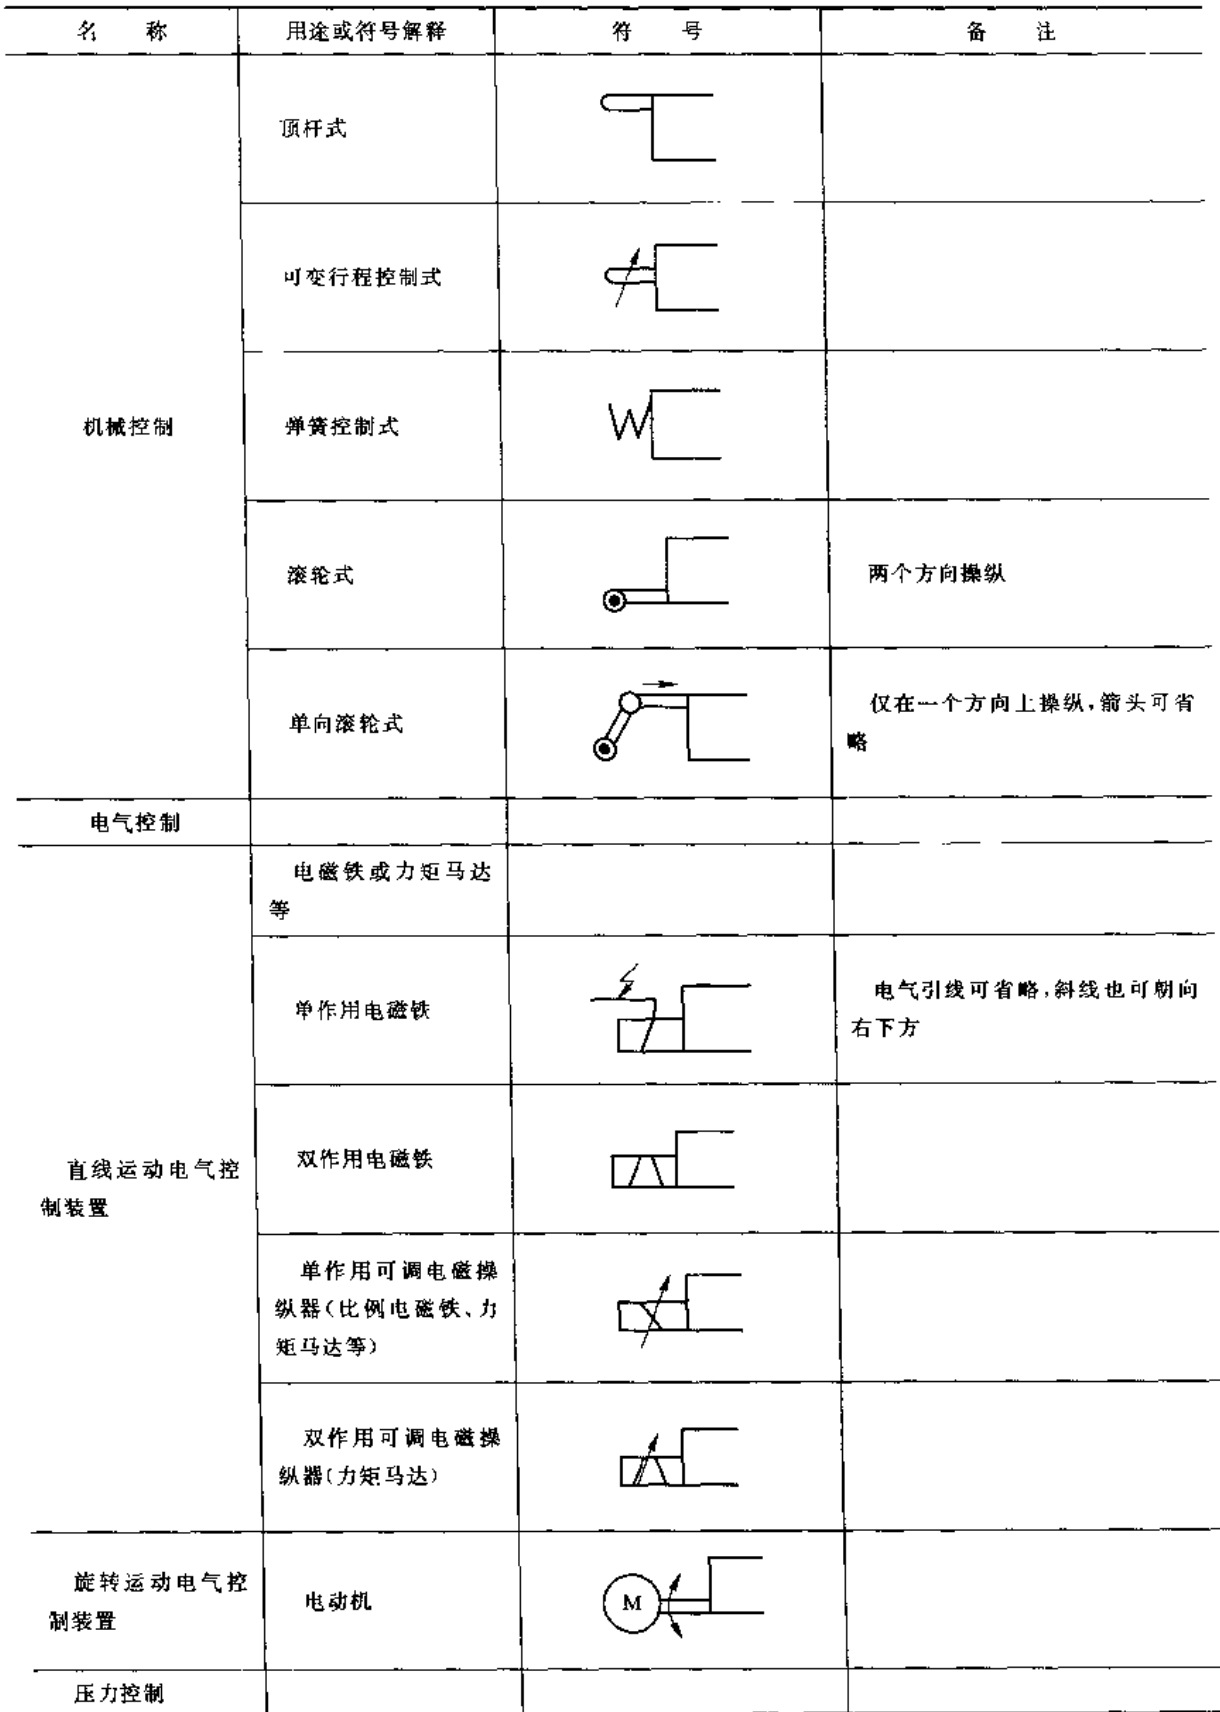 名 称 用途或符号解释 符 号 备 注
顶杆式
可变行程控制式
机械控制 弹簧控制式
滚轮式 两个方向操纵
单向滚轮式 仅在一个方向上操纵,箭头可省
略
电气控制
电磁铁或力矩马达
等
单作用电磁铁 电气引线可省略,斜线也可朝向
右下方
直线运动电气控
制装置
双作用电磁铁
单作用可调电磁操
纵器(比例电磁铁、力
矩马达等)
双作用可调电磁操
纵器(力矩马达)
旋转运动电气控
制装置
电动机
M
压力控制